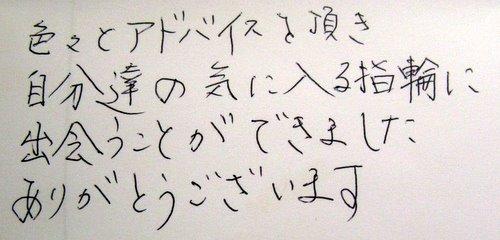 色々とアドバイスを頂き
自分達の気に入る指輪に
出会うことができました
ありがとうございます